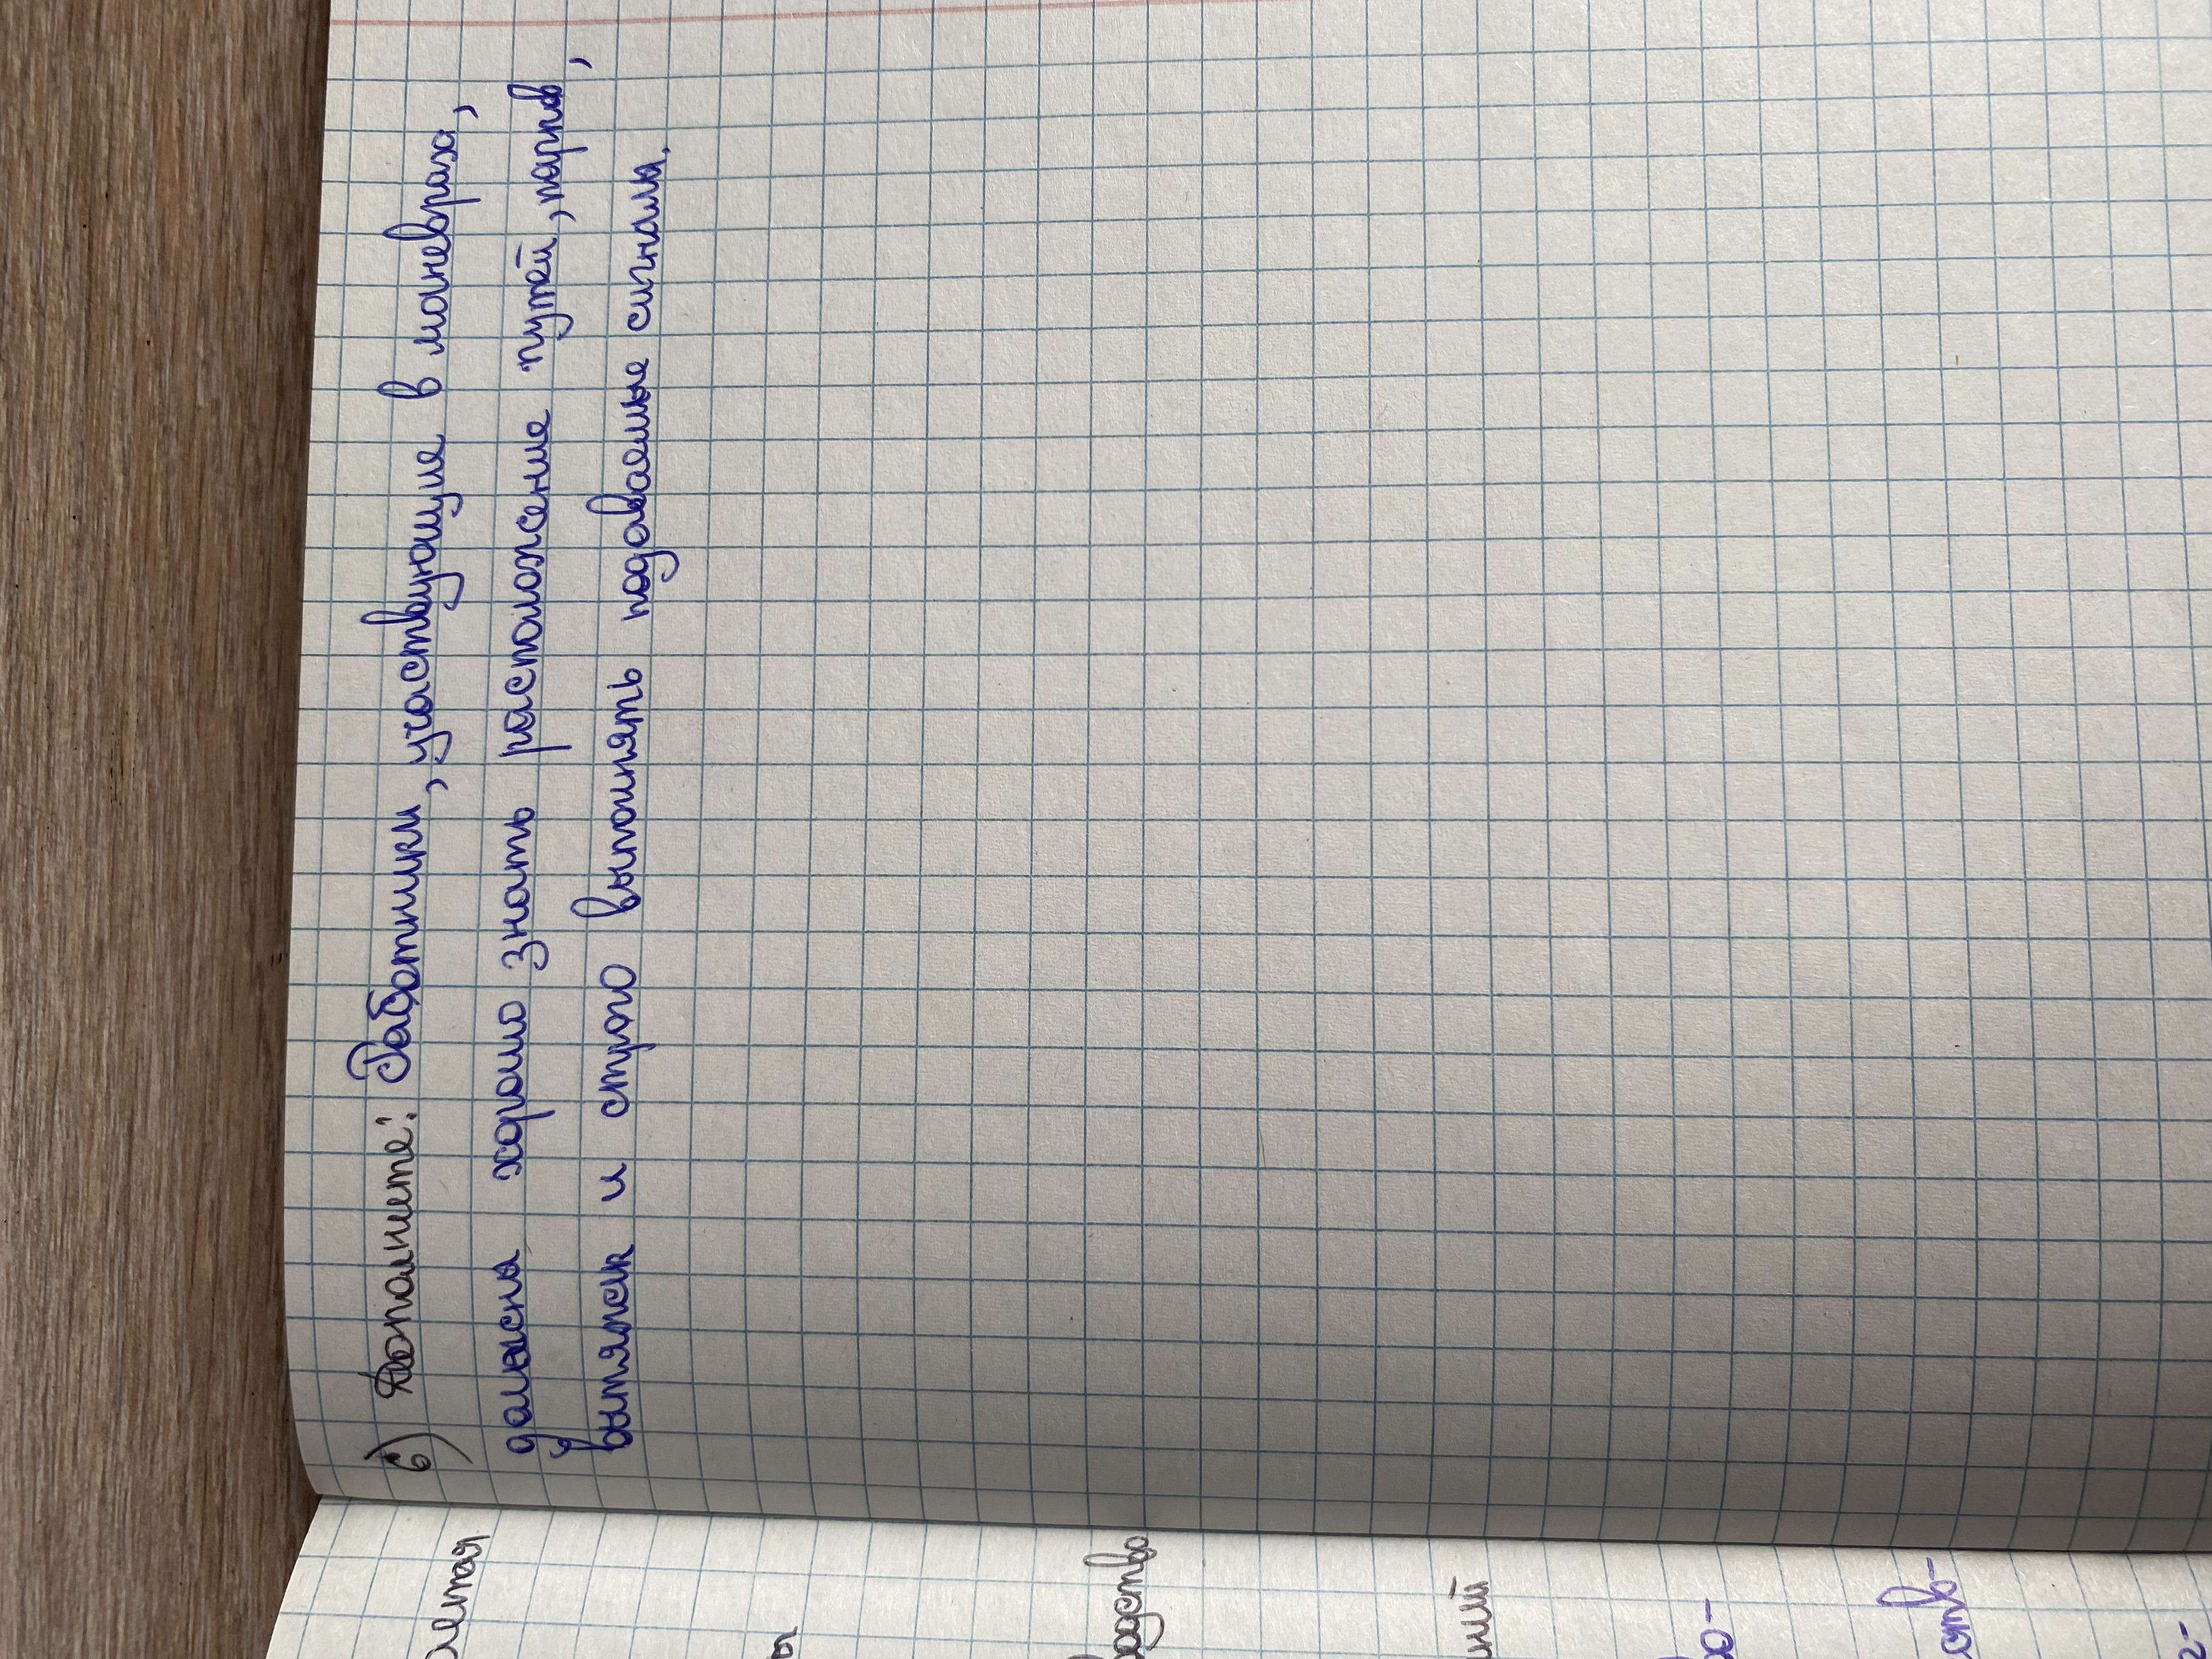 6) Дополните: Работники, участвующие в маневрах,
должны хорошо знать расположение путей, парков,
вытяжек и строго выполнять подаваемые сигналы.
ы
ний